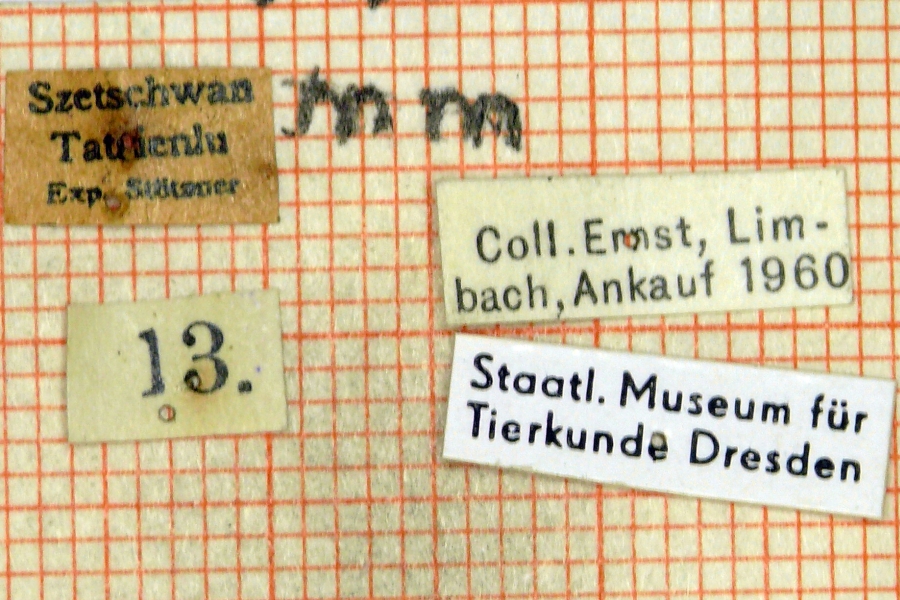 Szetschwan
Tatsienlu
Exp. Stötzner
mm
Coll. Ernst, Lim-
bach, Ankauf 1960
13.
Staatl. Museum für
Tierkunde Dresden